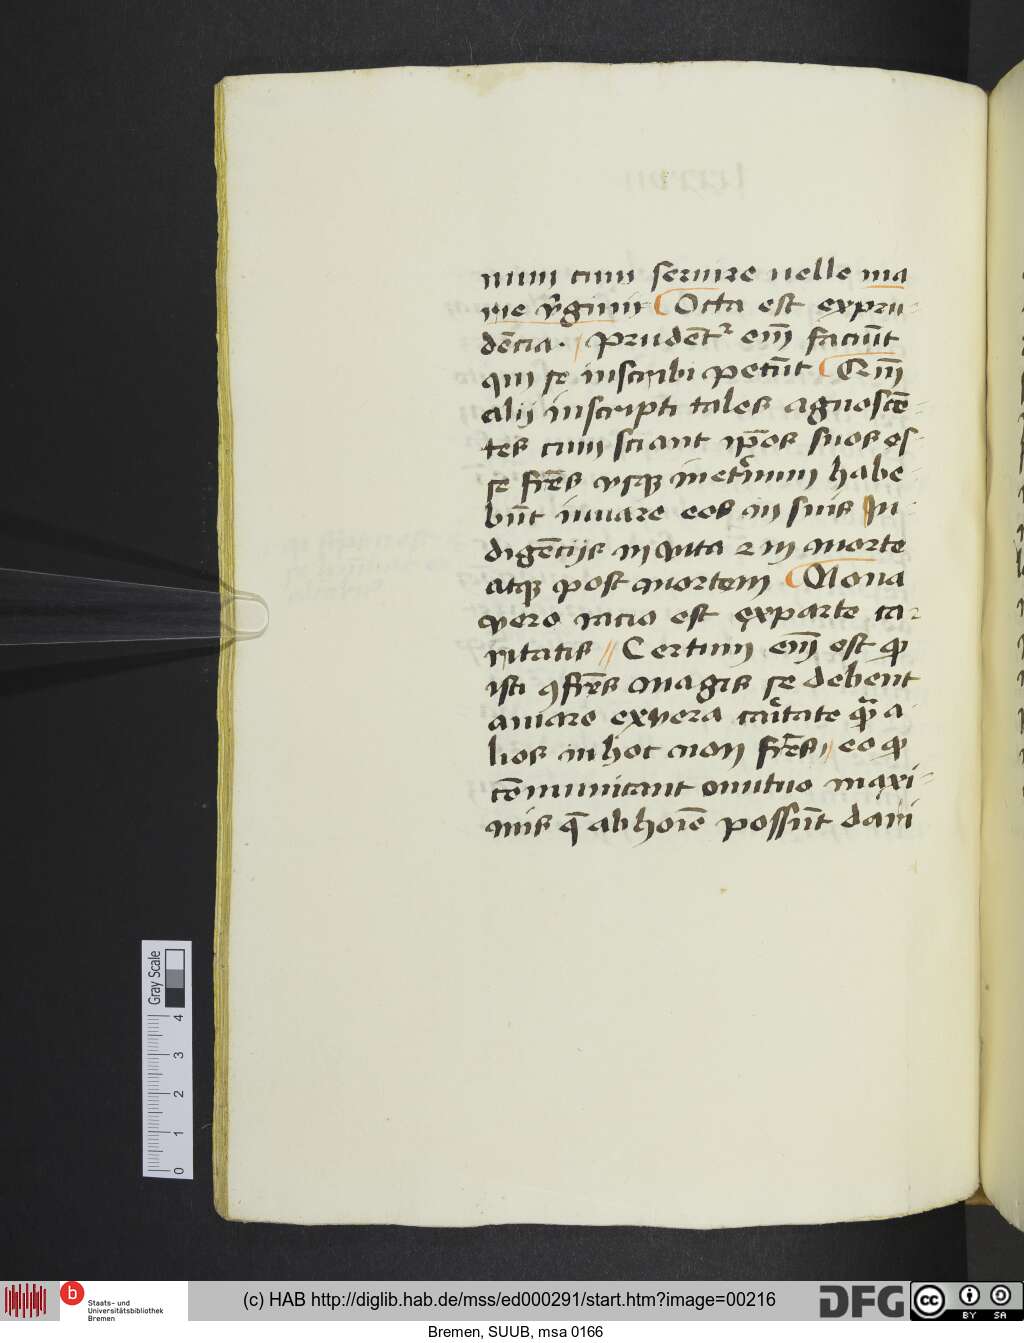 num cum seruire uelle ma
rie v̄ginis Octa est expru-
dēcia. prudentr̄ eīm faciūt
qui se inscribi petūt Qm̄
alij inscripti tales agnoscē-
tes cum sciant ip̄os suos es-
se fr̄es vsq; inet̄num habe-
būt iuuare eos in suis in-
digēcijs in vita ⁊ in morte
atq; post mortem Nona
vero racio est exparte ca-
ritatis // Certum eīm est ꝙ
isti ꝯfr̄es magis se debent
amare exvera cāitate qᷓ a-
lios in hoc non fr̄es // eo ꝙ
cōmunicant omutuo maxi-
mis q̄ ab hoīe possūt dari
Gray Scale
0 1 2 3 4
b Staats- und
Universitätsbibliothek
Bremen
(c) HAB http://diglib.hab.de/mss/ed000291/start.htm?image=00216
DFG
cc BY SA
Bremen, SUUB, msa 0166